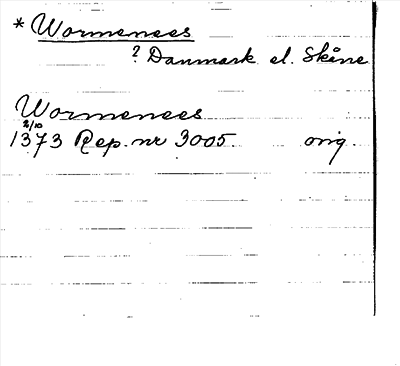 * Wormenees
? Danmark el. Skåne
Wormenees
2/10
1373 Rep. nr 3005. orig.